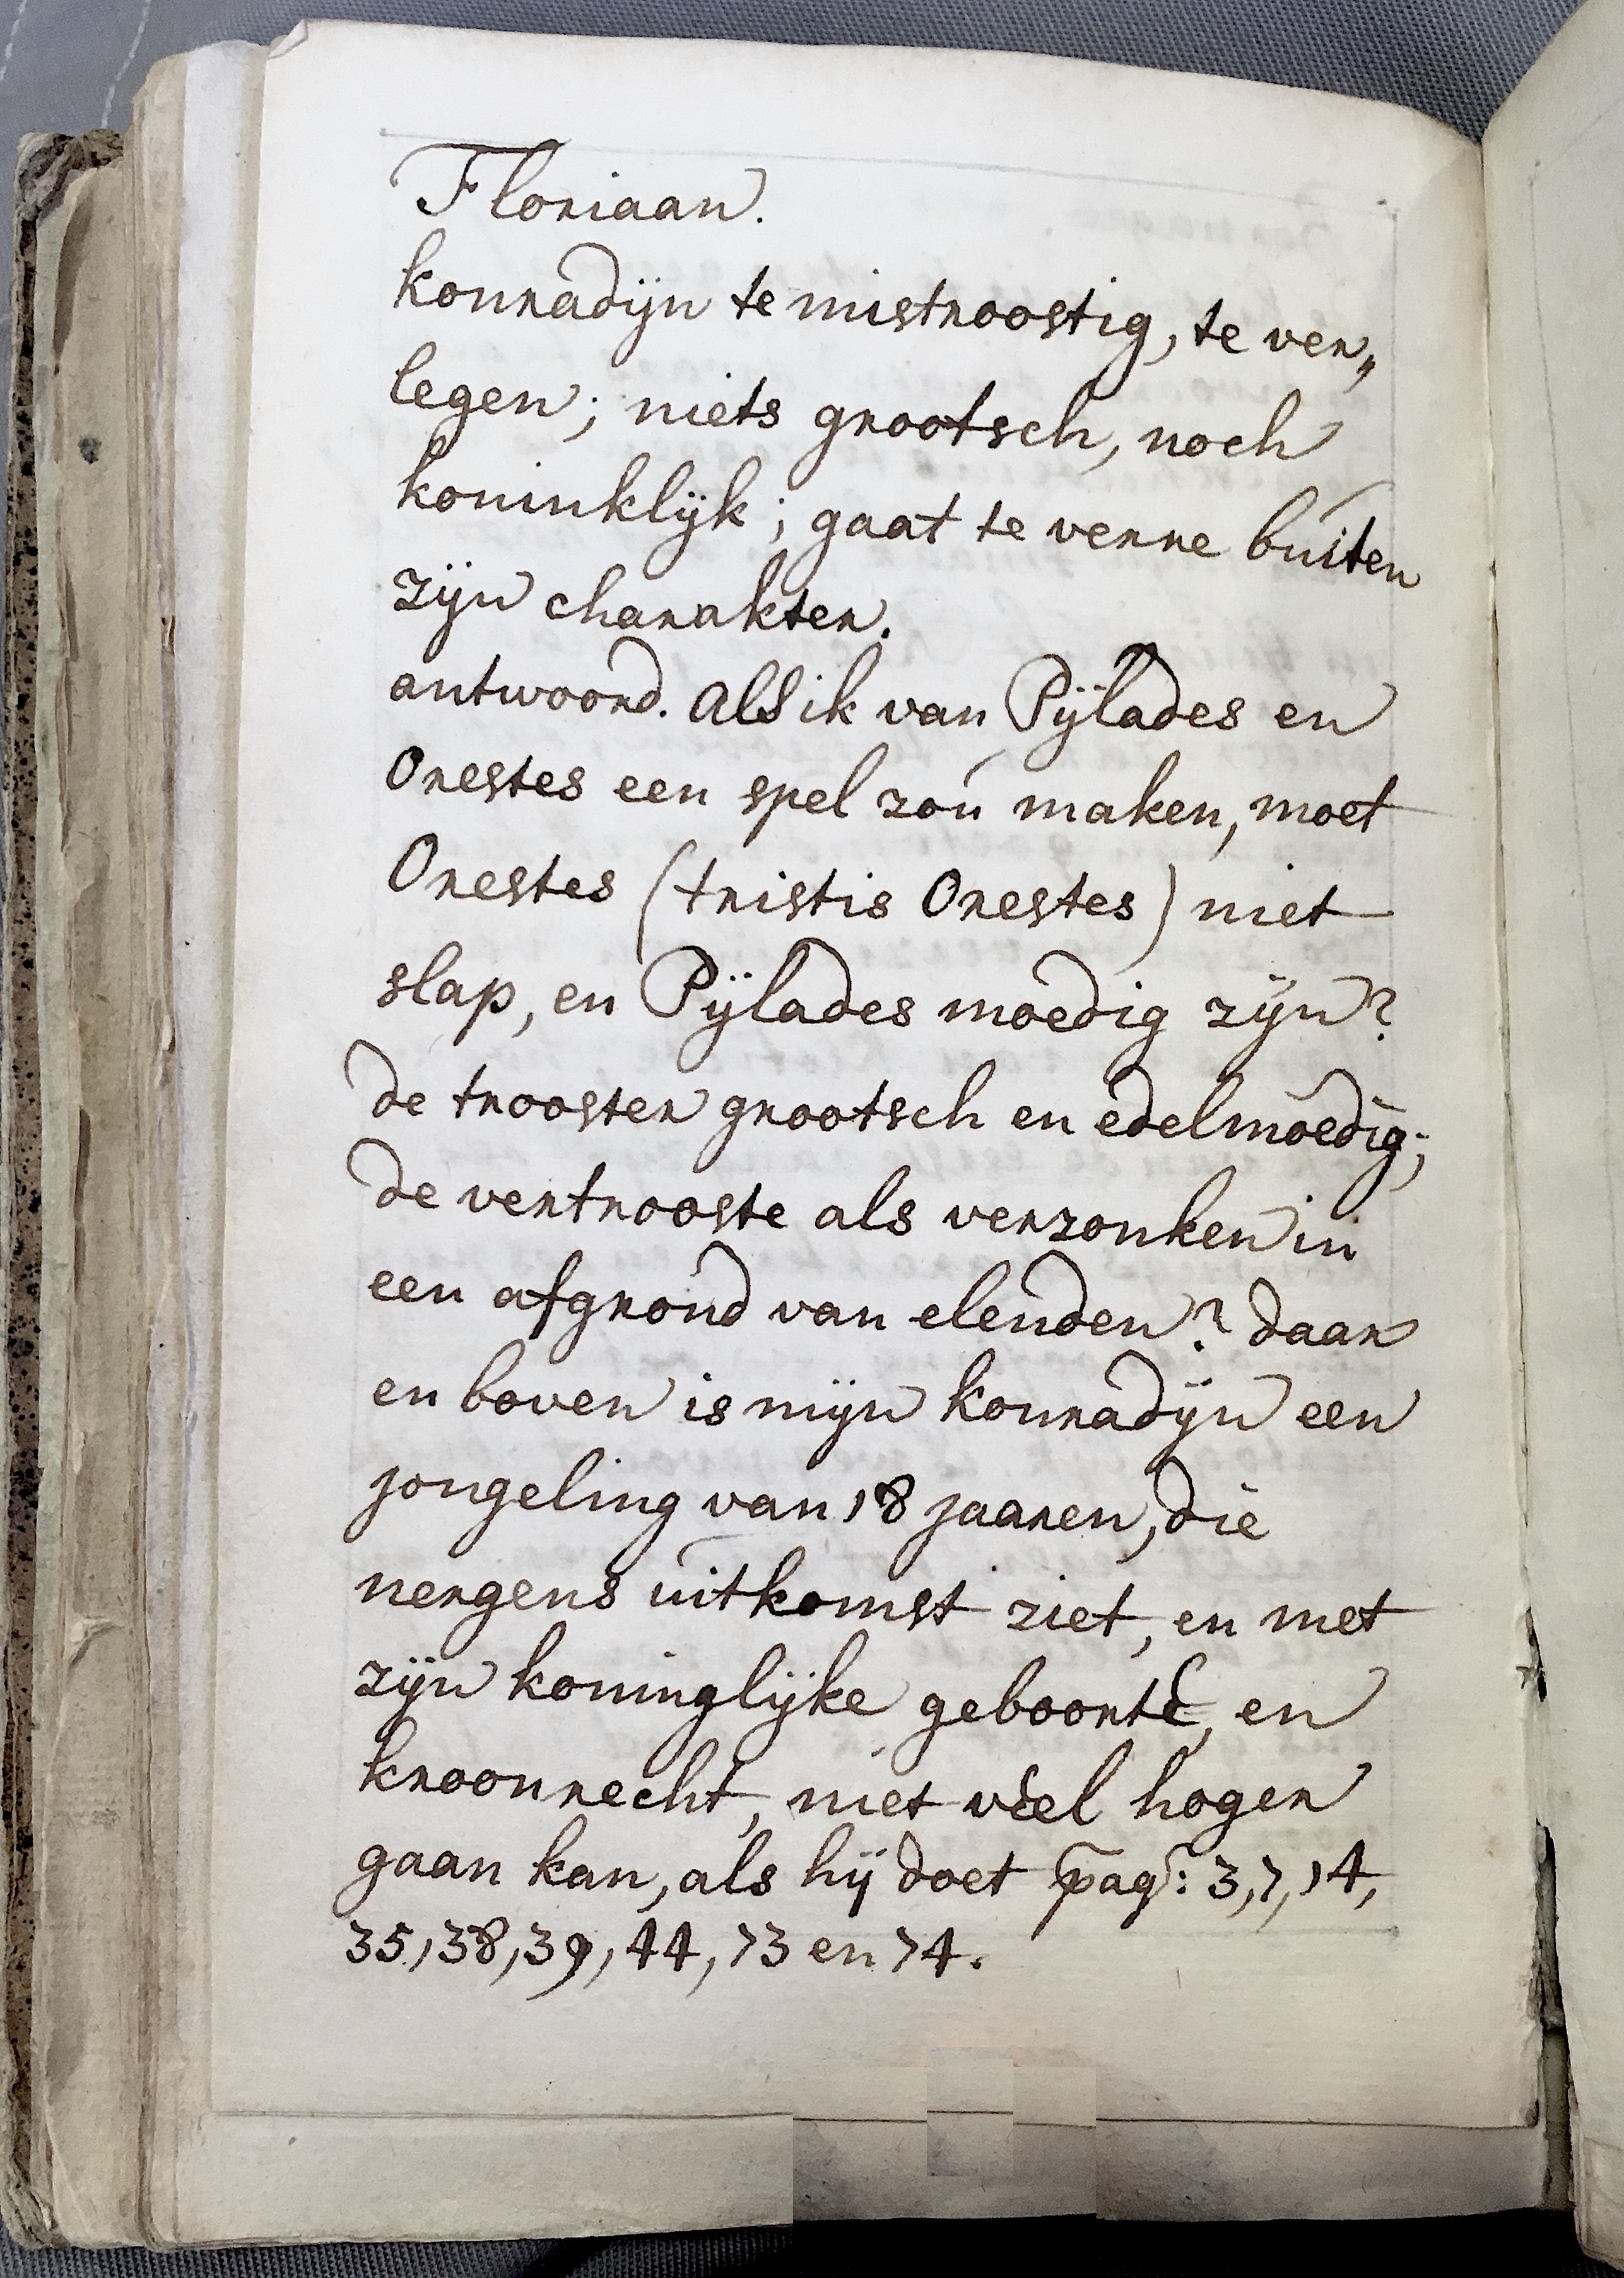 Floriaan.
konradijn te mistroostig, te ver„
legen; niets grootsch, noch
koninklijk; gaat te verre buiten
zijn charakter.
antwoord. Als ik van Pÿlades en
Orestes een spel zou maken, moet
Orestes (tristis Orestes) niet
slap, en Pÿlades moedig zijn?
de trooster grootsch en edelmoedig;
de vertrooste als verzonken in
een afgrond van elenden? daar
en boven is mijn konradijn een
jongeling van 18 jaaren, die
nergens uitkomst ziet, en met
zijn koninglijke geboorte, en
kroonrecht, niet veel hoger
gaan kan, als hij doet pag: 3, 7, 14,
35, 38, 39, 44, 73 en 74.